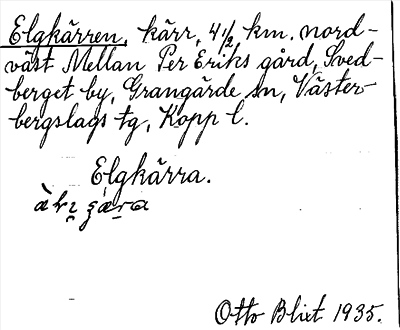 Elgkärren, kärr, 4 1/2 km. nord-
väst Mellan Per Eriks gård, Sved-
berget by, Grangärde sn, Väster-
bergslags tg, Kopp l.
Elgkärra.
Otto Blixt 1935.